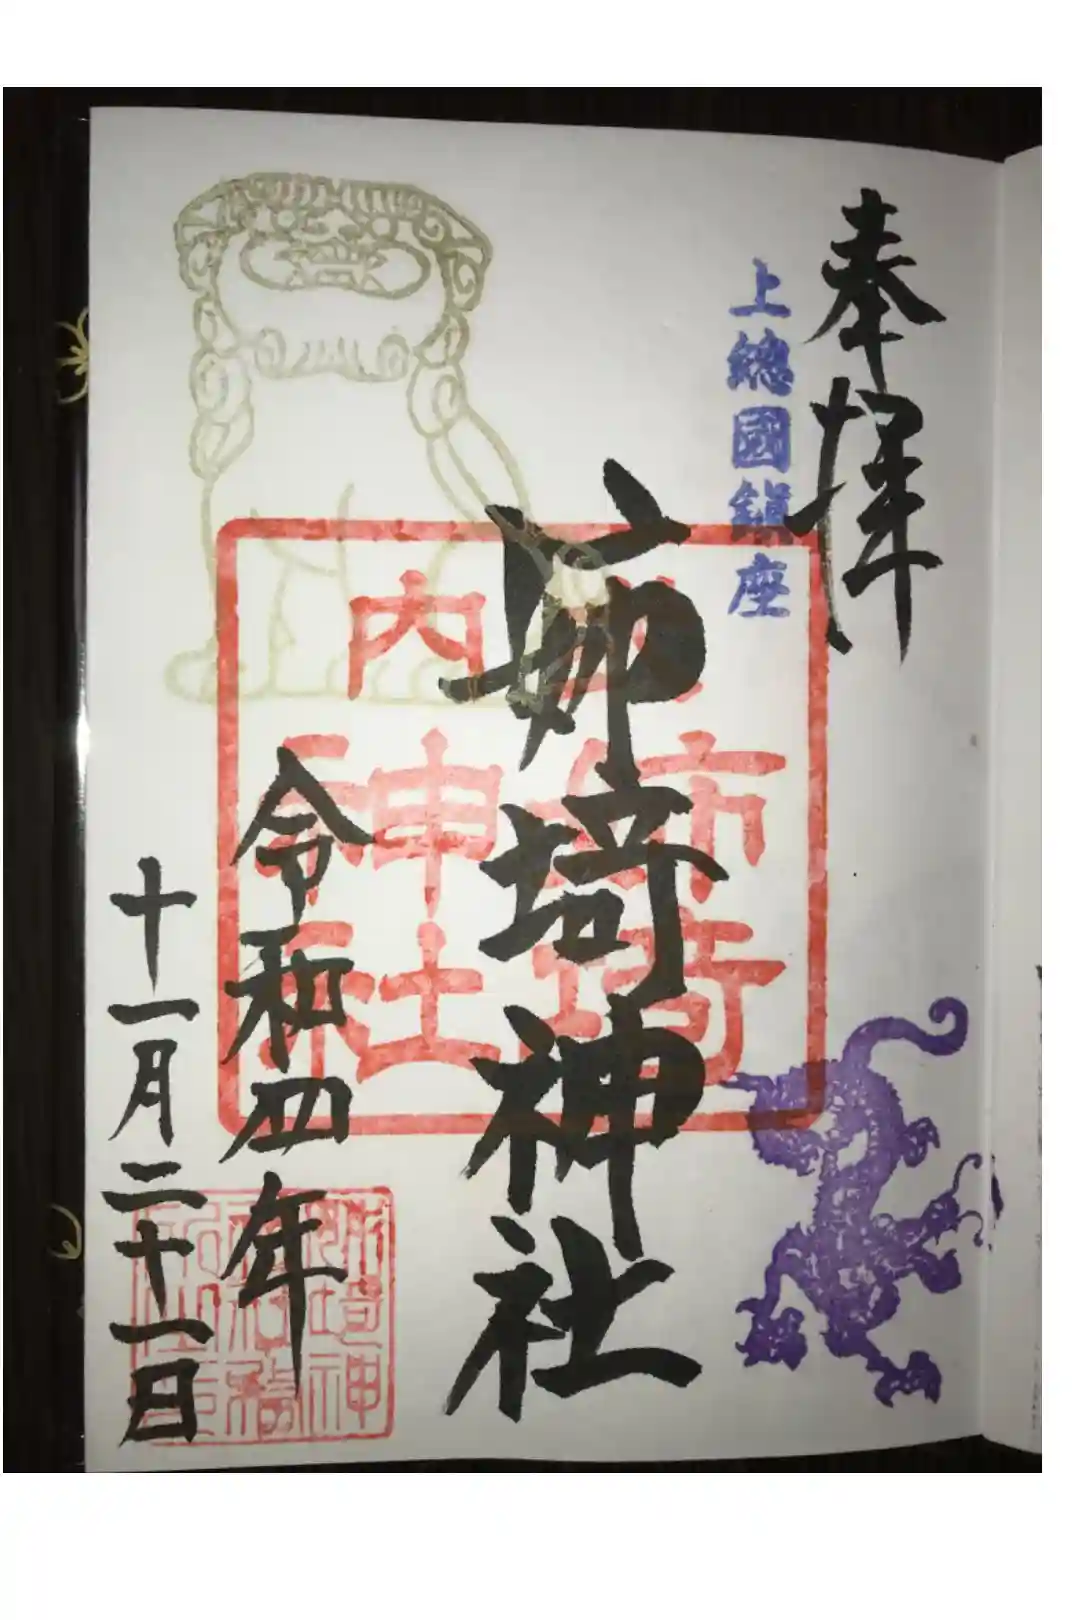 奉拝
上総國鎮座
姉埼神社
式内
姉埼
神社
令和四年
十一月二十一日